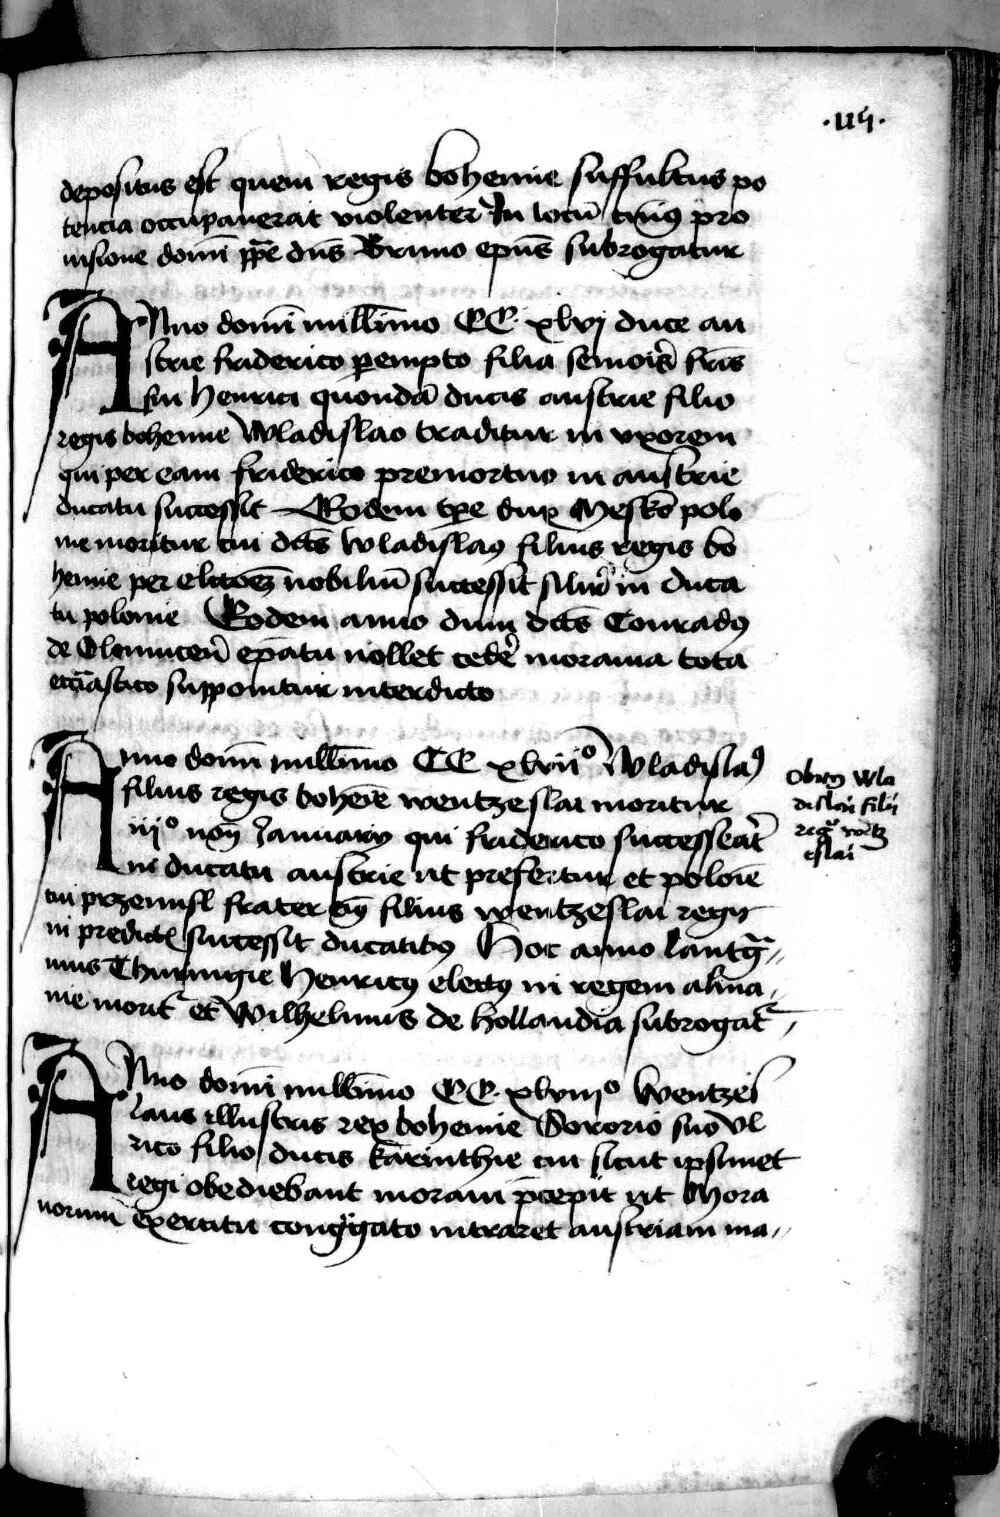 ·115·
depositus est quem regis bohemie suffultus po
tencia occupauerat violenter In locū cuiꝰ pro
uisione domī ppē dn̄s Bruno epūs subrogatur
Anno domī millīmo CC· xlvj duce au
strie friderico p̱empto filia senioris fr̄is
sui henrici quondā ducis austrie filio
regis bohemie Wladislao traditur in vxorem
qui per eam friderico premortuo in austrie
ducatu successit Eodem tp̱e dux Mesko polo
nie moritur cui dc̄s wladislaꝯ filius regis bo
hemie per elcc̄oeꝫ nobiliū successit silir̄ in duca
tu polonie Eodem anno dum dc̄s Conradꝯ
de Olomuceñ ep̄atu nollet ceder̄ morauia tota
ecc̄iastico supponitur interdicto
Anno domī millīmo CC xlvii° Wladislaꝯ
filius regis bohēie wentzeslai moritur
iij° noñ Januarij qui friderico successeat̄
in ducatu austrie ut prefertur et polōie
cui przemisl frater eiꝰ filius wentzeslai regis
in predictis successit ducatibꝯ Hoc anno lantg̃
uius Thuringie Henricꝯ electꝯ in regem alma
nie morit᷑ et Wilhelmus de hollandia subrogat᷑
Obitꝯ Wla
dislai filii
reg᷑ wētz
eslai
Anno domī millīmo CC· xlviii° Wentzes
laus illustris rex bohemie Sororio suo Vl
rico filio ducis karinthie cui sicut ipsimet
regi obediebant morauī p̄cepit ut Mora
uorum exercitu congg̃ato intraret austriam ma